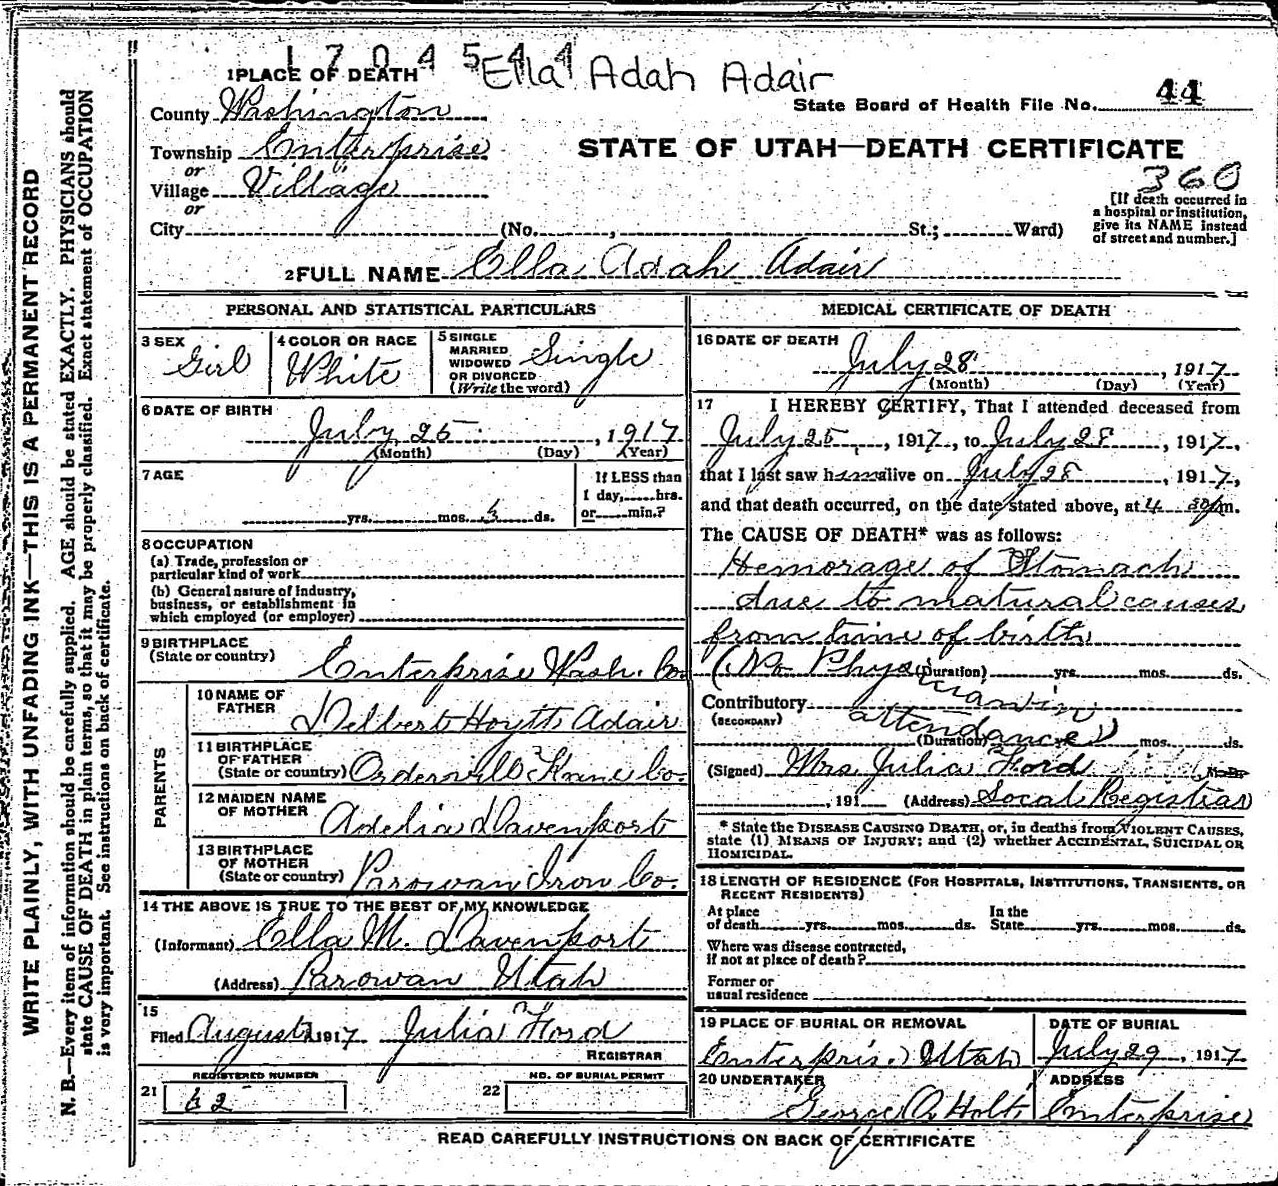 1704544
Ella Adah Adair
1 PLACE OF DEATH
State Board of Health File No. 44
County Washington
Township Enterprise
or
Village Village
or
City (No. , St.; Ward)
STATE OF UTAH—DEATH CERTIFICATE
360
[If death occurred in
a hospital or institution,
give its NAME instead
of street and number.]
2 FULL NAME Ella Adah Adair
PERSONAL AND STATISTICAL PARTICULARS
3 SEX Girl
4 COLOR OR RACE White
5 SINGLE
MARRIED
WIDOWED
OR DIVORCED
(Write the word) Single
6 DATE OF BIRTH
July 25, 1917
(Month) (Day) (Year)
7 AGE
yrs. mos. 3 ds.
If LESS than
1 day, hrs.
or min.?
8 OCCUPATION
(a) Trade, profession or
particular kind of work
(b) General nature of industry,
business, or establishment in
which employed (or employer)
9 BIRTHPLACE
(State or country) Enterprise Wash. Co.
PARENTS
10 NAME OF
FATHER Delbert Hoytt Adair
11 BIRTHPLACE
OF FATHER
(State or country) Orderville Kane Co.
12 MAIDEN NAME
OF MOTHER Adelia Davenport
13 BIRTHPLACE
OF MOTHER
(State or country) Parowan Iron Co.
14 THE ABOVE IS TRUE TO THE BEST OF MY KNOWLEDGE
(Informant) Ella M. Davenport
(Address) Parowan Utah
15
Filed August 1917 Julia Ford
REGISTRAR
REGISTERED NUMBER
21
NO. OF BURIAL PERMIT
22
MEDICAL CERTIFICATE OF DEATH
16 DATE OF DEATH
July 28, 1917
(Month) (Day) (Year)
17 I HEREBY CERTIFY, That I attended deceased from
July 25, 1917, to July 28, 1917,
that I last saw h alive on July 28, 1917,
and that death occurred, on the date stated above, at 4 30 pm.
The CAUSE OF DEATH* was as follows:
Hemorage of Stomach
due to natural causes
from time of birth
(No Physician in
attendance)
(Duration) yrs. mos. ds.
Contributory
(SECONDARY)
(Duration) mos. ds.
(Signed) Mrs Julia Ford M.D.
, 191 (Address) Local Registrar
* State the DISEASE CAUSING DEATH, or, in deaths from VIOLENT CAUSES,
state (1) MEANS OF INJURY; and (2) whether ACCIDENTAL, SUICIDAL OR
HOMICIDAL.
18 LENGTH OF RESIDENCE (FOR HOSPITALS, INSTITUTIONS, TRANSIENTS, OR
RECENT RESIDENTS)
At place
of death yrs. mos. ds.
In the
State yrs. mos. ds.
Where was disease contracted,
if not at place of death?
Former or
usual residence
19 PLACE OF BURIAL OR REMOVAL
Enterprise Utah
DATE OF BURIAL
July 29, 1917
20 UNDERTAKER
George A Holt
ADDRESS
Enterprise
READ CAREFULLY INSTRUCTIONS ON BACK OF CERTIFICATE
WRITE PLAINLY, WITH UNFADING INK—THIS IS A PERMANENT RECORD
N. B.—Every item of information should be carefully supplied. AGE should be stated EXACTLY. PHYSICIANS should
state CAUSE OF DEATH in plain terms, so that it may be properly classified. Exact statement of OCCUPATION
is very important. See instructions on back of certificate.